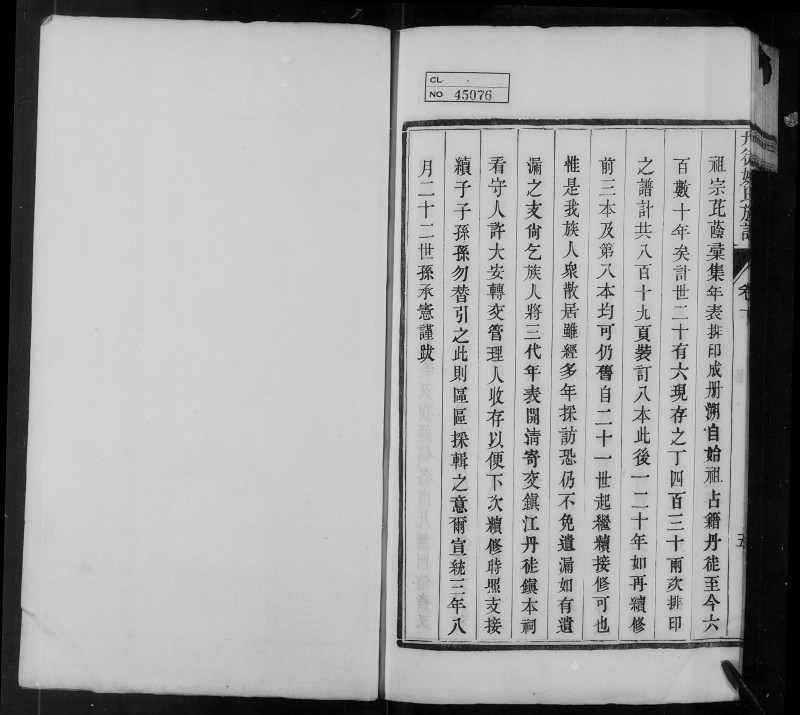 CL
NO 45076
丹徒姚氏族譜
卷
五
祖宗芘蔭彙集年表排印成册溯自始祖占籍丹徒至今六
百數十年矣計世二十有六現存之丁四百三十兩次排印
之譜計共八百十九頁裝訂八本此後一二十年如再續修
前三本及第八本均可仍舊自二十一世起繼續接修可也
惟是我族人衆散居雖經多年採訪恐仍不免遺漏如有遺
漏之支尙乞族人將三代年表開淸寄交鎭江丹徒鎭本祠
看守人許大安轉交管理人收存以便下次續修時照支接
續子子孫孫勿替引之此則區區採輯之意爾宣統三年八
月二十二世孫承憲謹跋